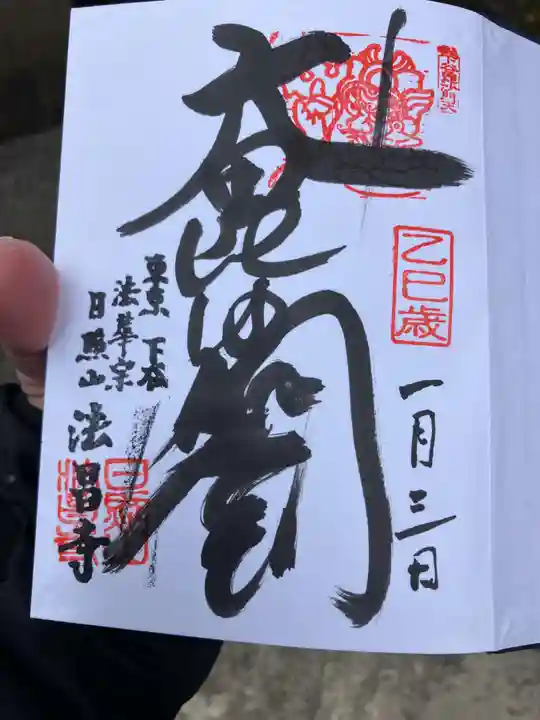 乙巳歳
一月三日
大毘沙門天
東京 下谷
法華宗
日照山
法昌寺